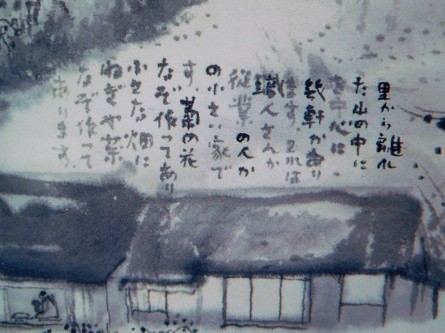 里から離れ
た山の中に
を中心に
幾軒かあり
ます それは
職人さんか
従業の人か
の小さい家で
す 菊の花
なぞ作ってあり
小さな畑に
ねぎや菜
なぞ作って
あります。